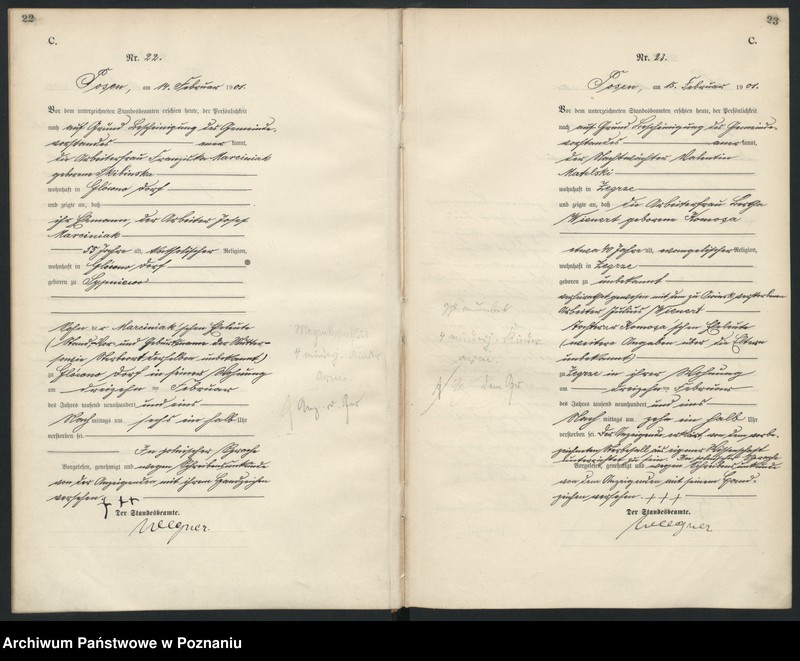 22
C.
Nr. 22.
Posen, am 14. Februar 1901.
Vor dem unterzeichneten Standesbeamten erschien heute, der Persönlichkeit
nach auf Grund Bescheinigung des Gemeinde-
vorstandes anerkannt,
die Arbeiterfrau Franziska Marciniak
geborene Skibinska
wohnhaft in Glowno Dorf
und zeigte an, daß
ihr Ehemann, der Arbeiter Josef
Marciniak
55 Jahre alt, katholischer Religion,
wohnhaft in Glowno Dorf
geboren zu
Sohn der Marciniak'schen Eheleute
(Stand, Vor- und Geburtsname der Mutter
sowie Sterbeort derselben unbekannt)
zu Glowno Dorf in seiner Wohnung
am dreizehnten Februar
des Jahres tausend neunhundert und eins
Nachmittags um sechs ein halb Uhr
verstorben sei.
In polnischer Sprache
Vorgelesen, genehmigt und wegen Schreibensunkunde
von der Anzeigenden mit ihrem Handzeichen
versehen. +++
Der Standesbeamte.
4 minderj. Kinder
23
C.
Nr. 23.
Posen, am 15. Februar 1901.
Vor dem unterzeichneten Standesbeamten erschien heute, der Persönlichkeit
nach auf Grund Bescheinigung des Gemeinde-
vorstandes anerkannt,
der Nachtwächter Valentin
Matelski
wohnhaft in Zegrze
und zeigte an, daß die Arbeiterfrau Bertha
Wienert geborene Komoza
etwa 40 Jahre alt, evangelischer Religion,
wohnhaft in Zegrze
geboren zu unbekannt
verheirathet gewesen mit dem zu verstorbenen
Arbeiter Julius Wienert
Tochter der Komoza'schen Eheleute
(weitere Angaben über die Eltern
unbekannt)
zu Zegrze in ihrer Wohnung
am dreizehnten Februar
des Jahres tausend neunhundert und eins
Nachmittags um zehn ein halb Uhr
verstorben sei. Der Anzeigende erklärt von dem vorbe-
zeichneten Sterbefall aus eigener Wissenschaft
unterrichtet zu sein. In polnischer Sprache
Vorgelesen, genehmigt und wegen Schreibensunkunde
von dem Anzeigenden mit seinem Hand-
zeichen versehen. +++
Der Standesbeamte.
4 minderj. Kinder
Archiwum Państwowe w Poznaniu